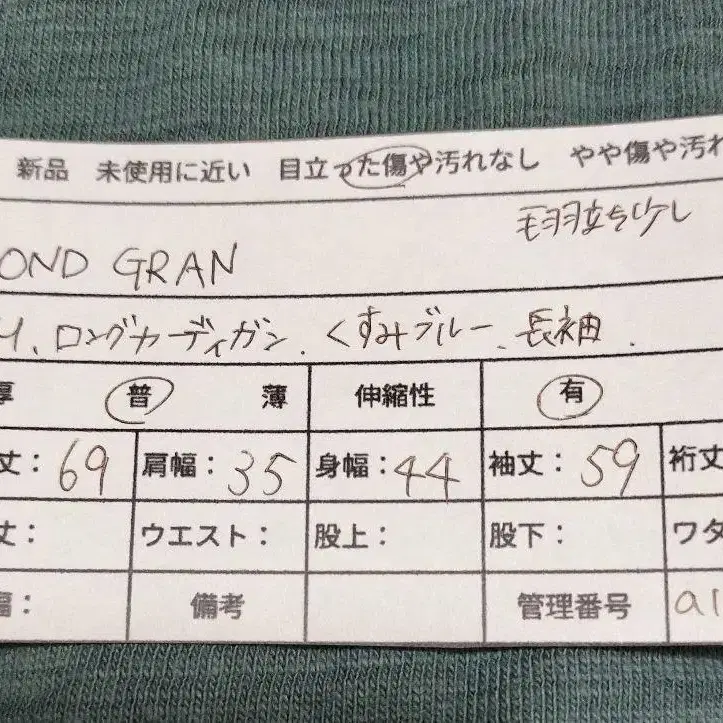 新品 未使用に近い 目立った傷や汚れなし やや傷や汚れ
毛羽立ち少し
OND GRAN
M、ロングカーディガン、くすみブルー、長袖.
厚 普 薄 伸縮性 有
丈: 69 肩幅: 35 身幅: 44 袖丈: 59 裄丈
丈: ウエスト: 股上: 股下: ワタ
幅: 備考 管理番号 a1